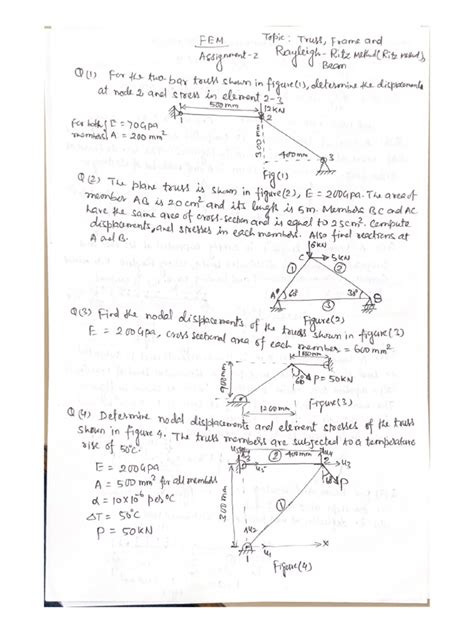 FEM
Assignment-2
Topic: Truss, Frame and
Rayleigh-Ritz method (Ritz method)
Beam
Q(1) For the two bar truss shown in figure(1), determine the displacements
at node 2 and stress in element 2-3
500mm
12KN
2
For both E = 70Gpa
members A = 200mm²
400mm
3
Fig(1)
Q(2) The plane truss is shown in figure(2), E = 200Gpa. The area of
member AB is 20cm² and its length is 5m. Members BC and AC
have the same area of cross-section and is equal to 25cm². Compute
displacements, and stresses in each member. Also find reactions at
A and B.
6KN
C
5KN
1
2
A
60°
30°
B
3
Figure(2)
Q(3) Find the nodal displacements of the truss shown in figure(3)
E = 200Gpa, cross sectional area of each member = 600mm²
60°
P = 50KN
1200mm
Figure(3)
Q(4) Determine nodal displacements and element stresses of the truss
shown in figure 4. The truss members are subjected to a temperature
rise of 50°C.
E = 200Gpa
A = 500mm² for all members
α = 10x10⁻⁶ per°C
ΔT = 50°C
P = 50KN
2
400mm
u4
u3
u5
2
P
300mm
1
u2
1
u1
x
Figure(4)